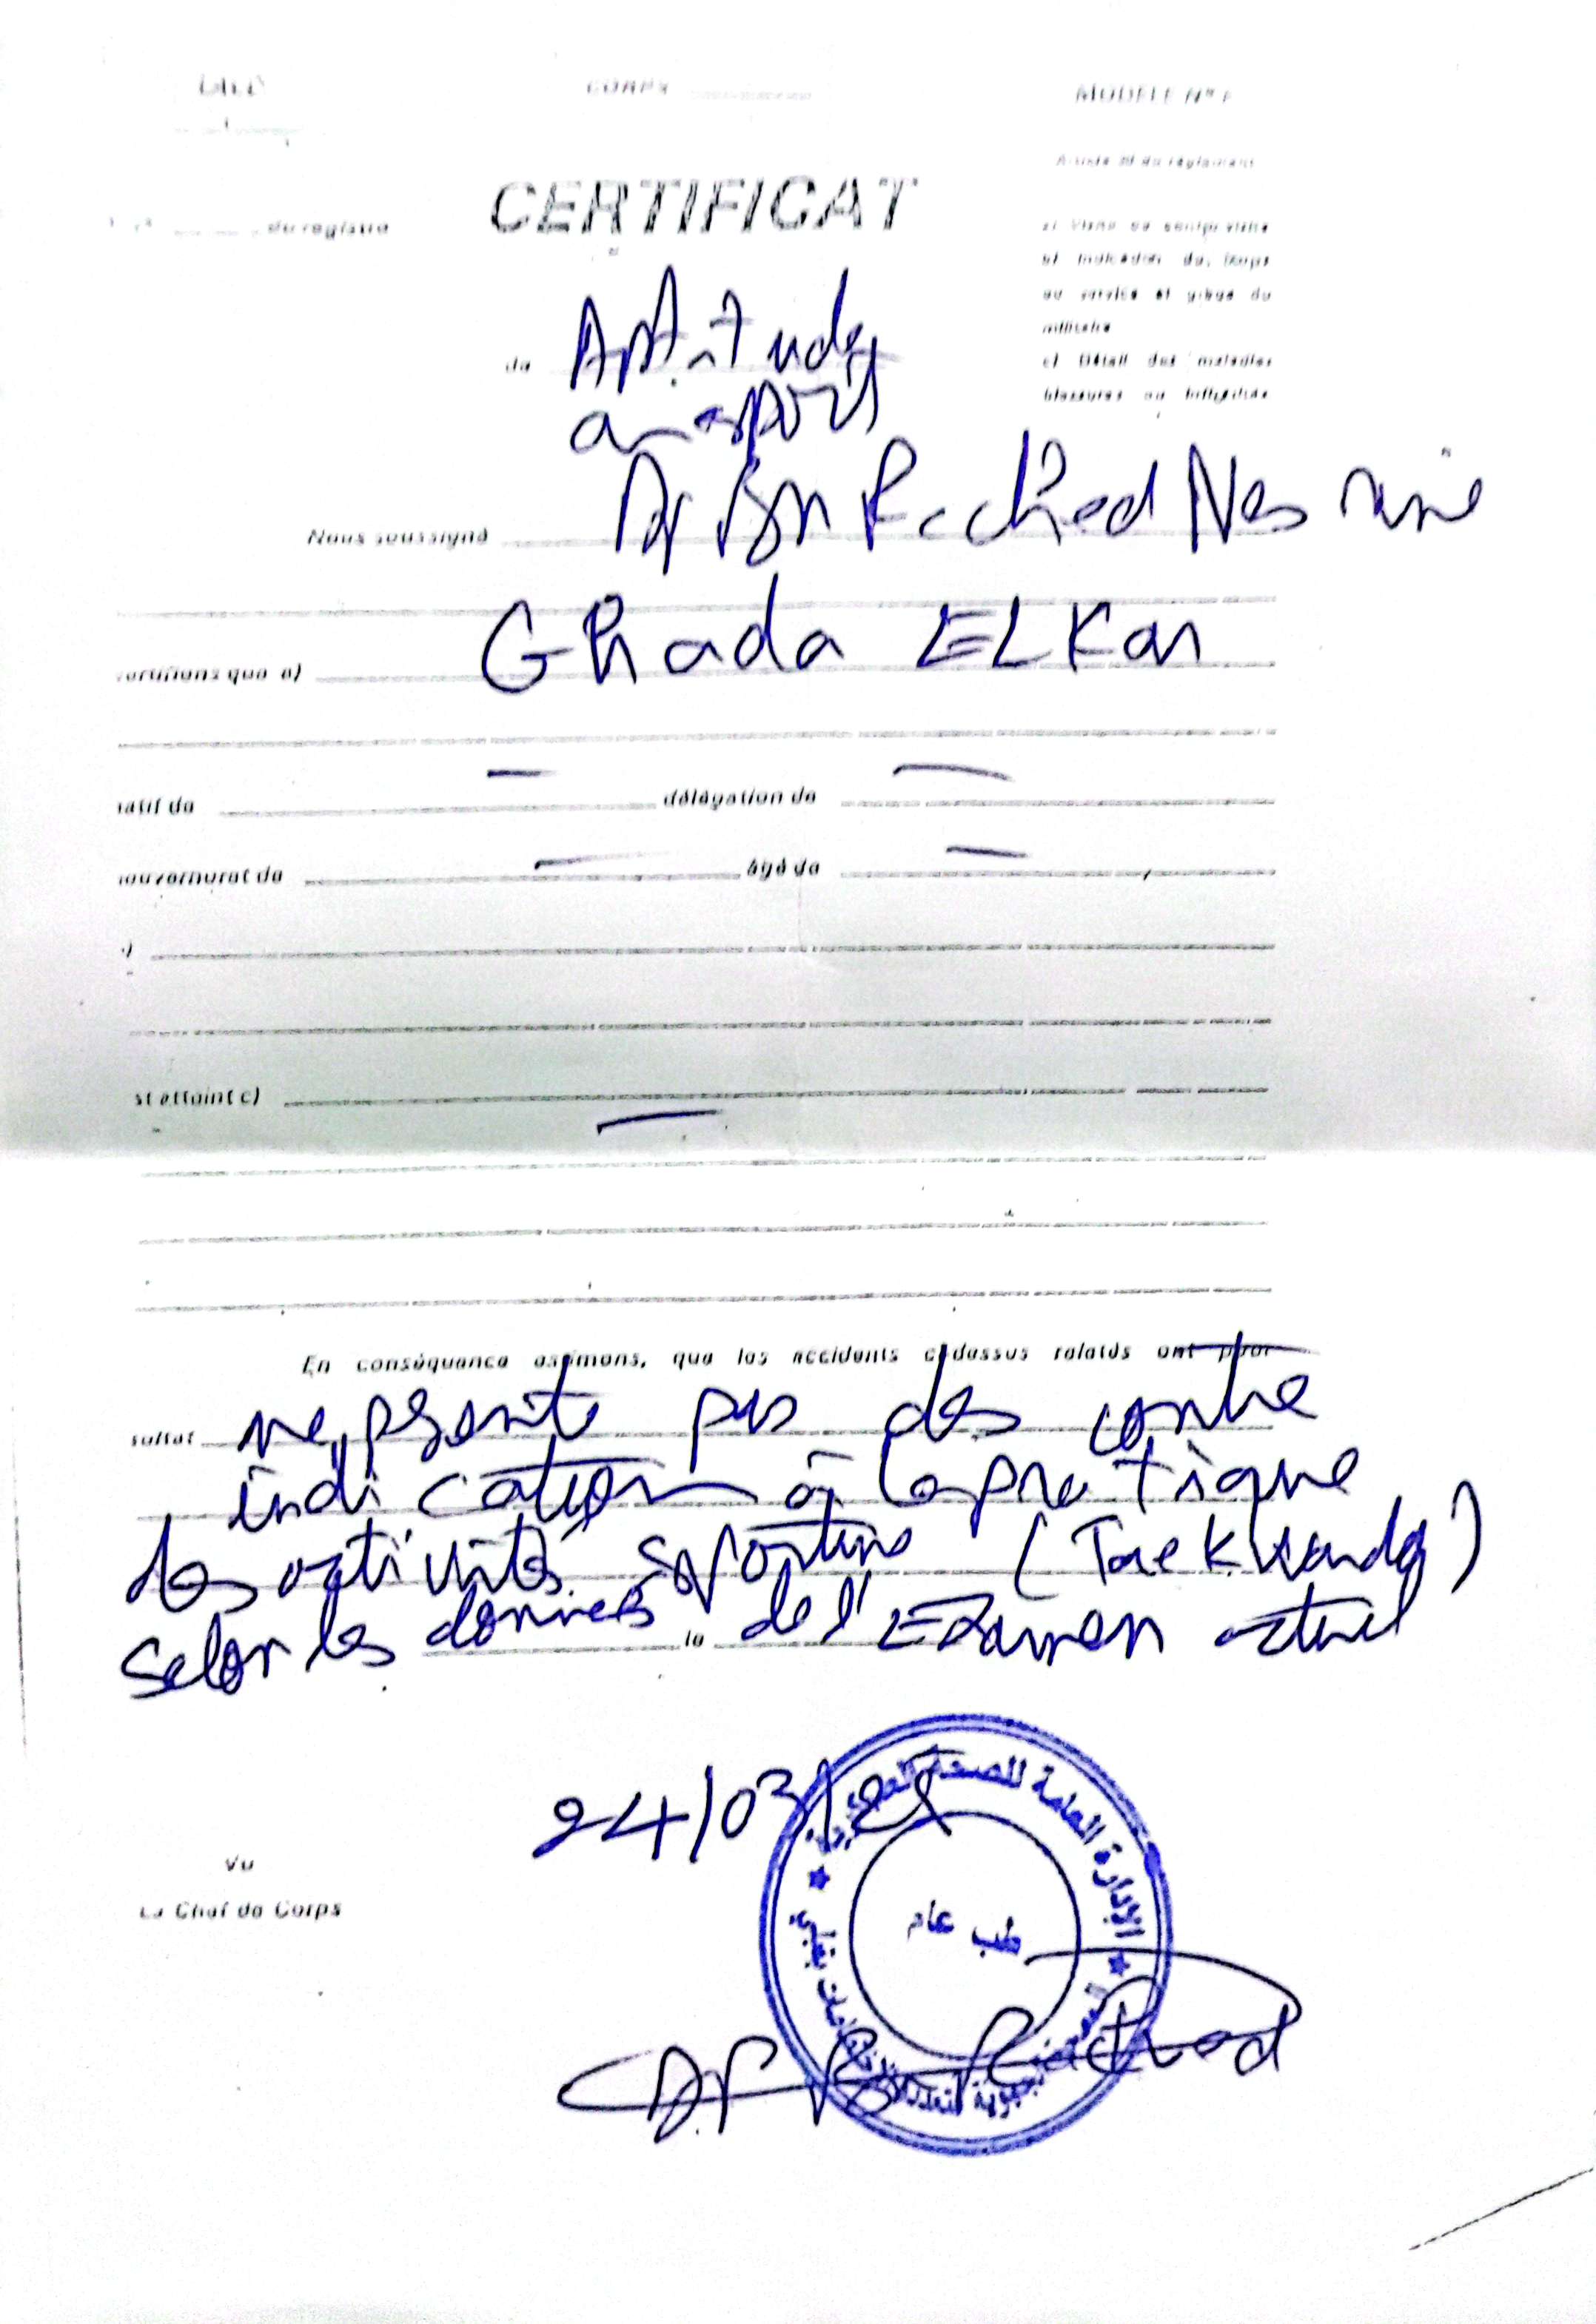 CORPS
MODELE N° 1
du registre
CERTIFICAT
a) Visite ou contre visite
b) Indication du Corps
ou service et grade du
militaire
c) Détail des maladies
blessures ou infirmités
de Aptitude
au sport
Nous soussigné Dr Ben Rached Nesrine
certifions que a) Ghada ELKar
natif de — délégation de —
gouvernorat de — âgé de —
st atteint c) —
En conséquence estimons, que les accidents cidessus relatés ont pour
sultat ne présente pas des contre
indication à la pratique
des activités sportive (Taekwondo)
selon les données le de l'Examen actuel
24/03/25
الإدارة العامة للصحة
طب عام
Vu
Le Chef de Corps
Dr Ben Rached